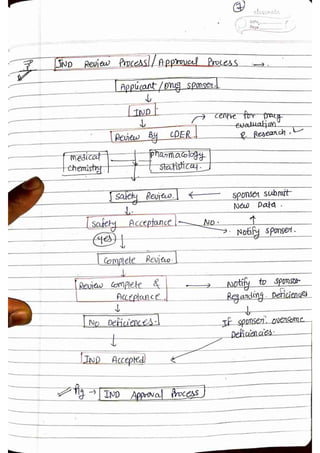 classmate
Date
Page
IND Review Process / Approval Process →.
Applicant / Drug sponser
IND
→ centre for Drug
evaluation
& Research.
Review By CDER
medical
chemistry
pharmacology
statistical.
Safety Review.
← sponser submit
New Data.
Safety Acceptance
NO.
→ Notify sponser.
Yes
Complete Review
Review complete &
Acceptance
→ Notify to sponsor
Regarding Deficiences
No Deficiences.
If sponser overcome
Deficiencies.
IND Accepted
Fig → IND Approval Process